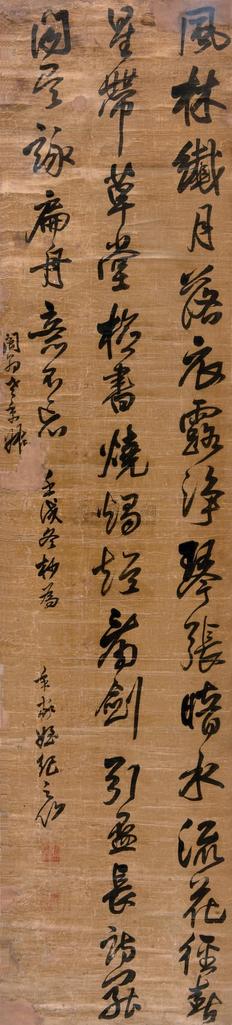 風林纖月落衣露淨琴張暗水流花徑春
星帶草堂檢書燒燭短看劍引盃長詩罷
聞吳詠扁舟意不忘
壬戌冬杪為
年敬姪紀之仙